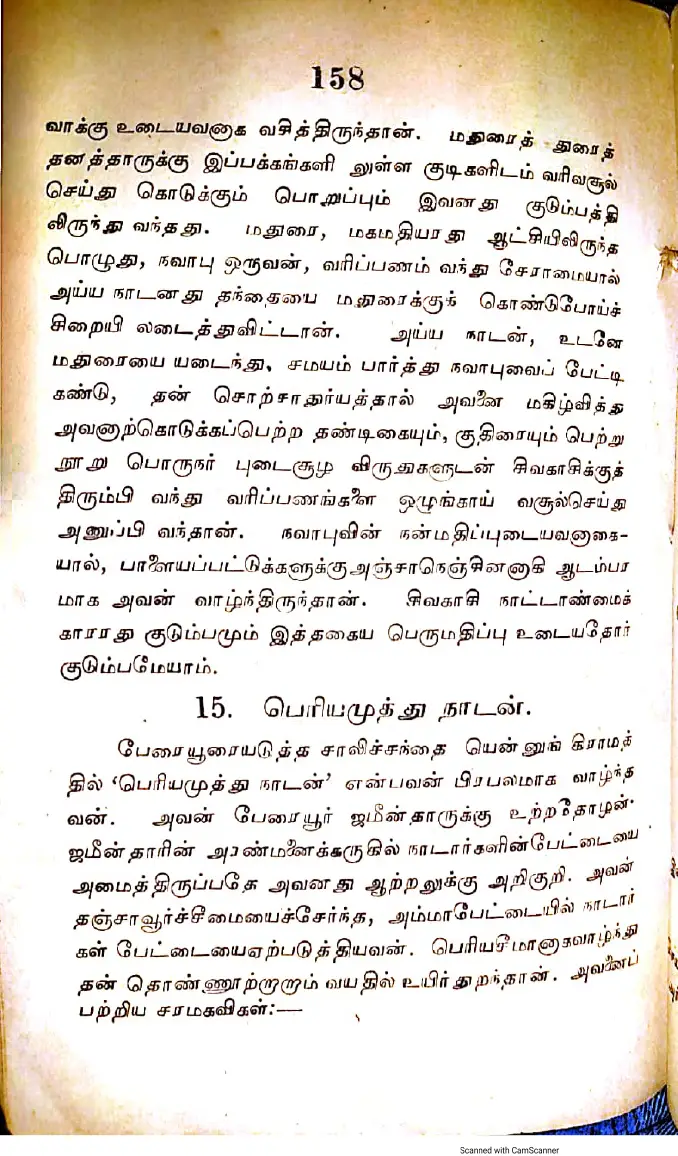 158
வாக்கு உடையவனாக வசித்திருந்தான். மதுரைத் துரைத்
தனத்தாருக்கு இப்பக்கங்களி லுள்ள குடிகளிடம் வரிவசூல்
செய்து கொடுக்கும் பொறுப்பும் இவனது குடும்பத்தி
லிருந்து வந்தது. மதுரை, மகமதியரது ஆட்சியிலிருந்த
பொழுது, நவாபு ஒருவன், வரிப்பணம் வந்து சேராமையால்
அய்ய நாடனது தந்தையை மதுரைக்குக் கொண்டுபோய்ச்
சிறையி லடைத்துவிட்டான். அய்ய நாடன், உடனே
மதுரையை யடைந்து, சமயம் பார்த்து நவாபுவைப் பேட்டி
கண்டு, தன் சொற்சாதுர்யத்தால் அவனை மகிழ்வித்து
அவனாற்கொடுக்கப்பெற்ற தண்டிகையும், குதிரையும் பெற்று
நூறு பொருநர் புடைசூழ விருதுகளுடன் சிவகாசிக்குத்
திரும்பி வந்து வரிப்பணங்களை ஒழுங்காய் வசூல்செய்து
அனுப்பி வந்தான். நவாபுவின் நன்மதிப்புடையவனாகை-
யால், பாளையப்பட்டுக்களுக்குஅஞ்சாநெஞ்சினனாகி ஆடம்பர
மாக அவன் வாழ்ந்திருந்தான். சிவகாசி நாட்டாண்மைக்
காரரது குடும்பமும் இத்தகைய பெருமதிப்பு உடையதோர்
குடும்பமேயாம்.
15. பெரியமுத்து நாடன்.
பேரையூரையடுத்த சாலிச்சந்தை யென்னுங் கிராமத்
தில் ‘பெரியமுத்து நாடன்’ என்பவன் பிரபலமாக வாழ்ந்த
வன். அவன் பேரையூர் ஜமீன்தாருக்கு உற்றதோழன்.
ஜமீன்தாரின் அரண்மனைக்கருகில் நாடார்களின்பேட்டையை
அமைத்திருப்பதே அவனது ஆற்றலுக்கு அறிகுறி. அவன்
தஞ்சாவூர்ச்சீமையைச்சேர்ந்த, அம்மாபேட்டையில் நாடார்
கள் பேட்டையைஏற்படுத்தியவன். பெரியசீமானாகவாழ்ந்து
தன் தொண்ணூற்றாறாம் வயதில் உயிர்துறந்தான். அவனைப்
பற்றிய சரமகவிகள்:—
Scanned with CamScanner